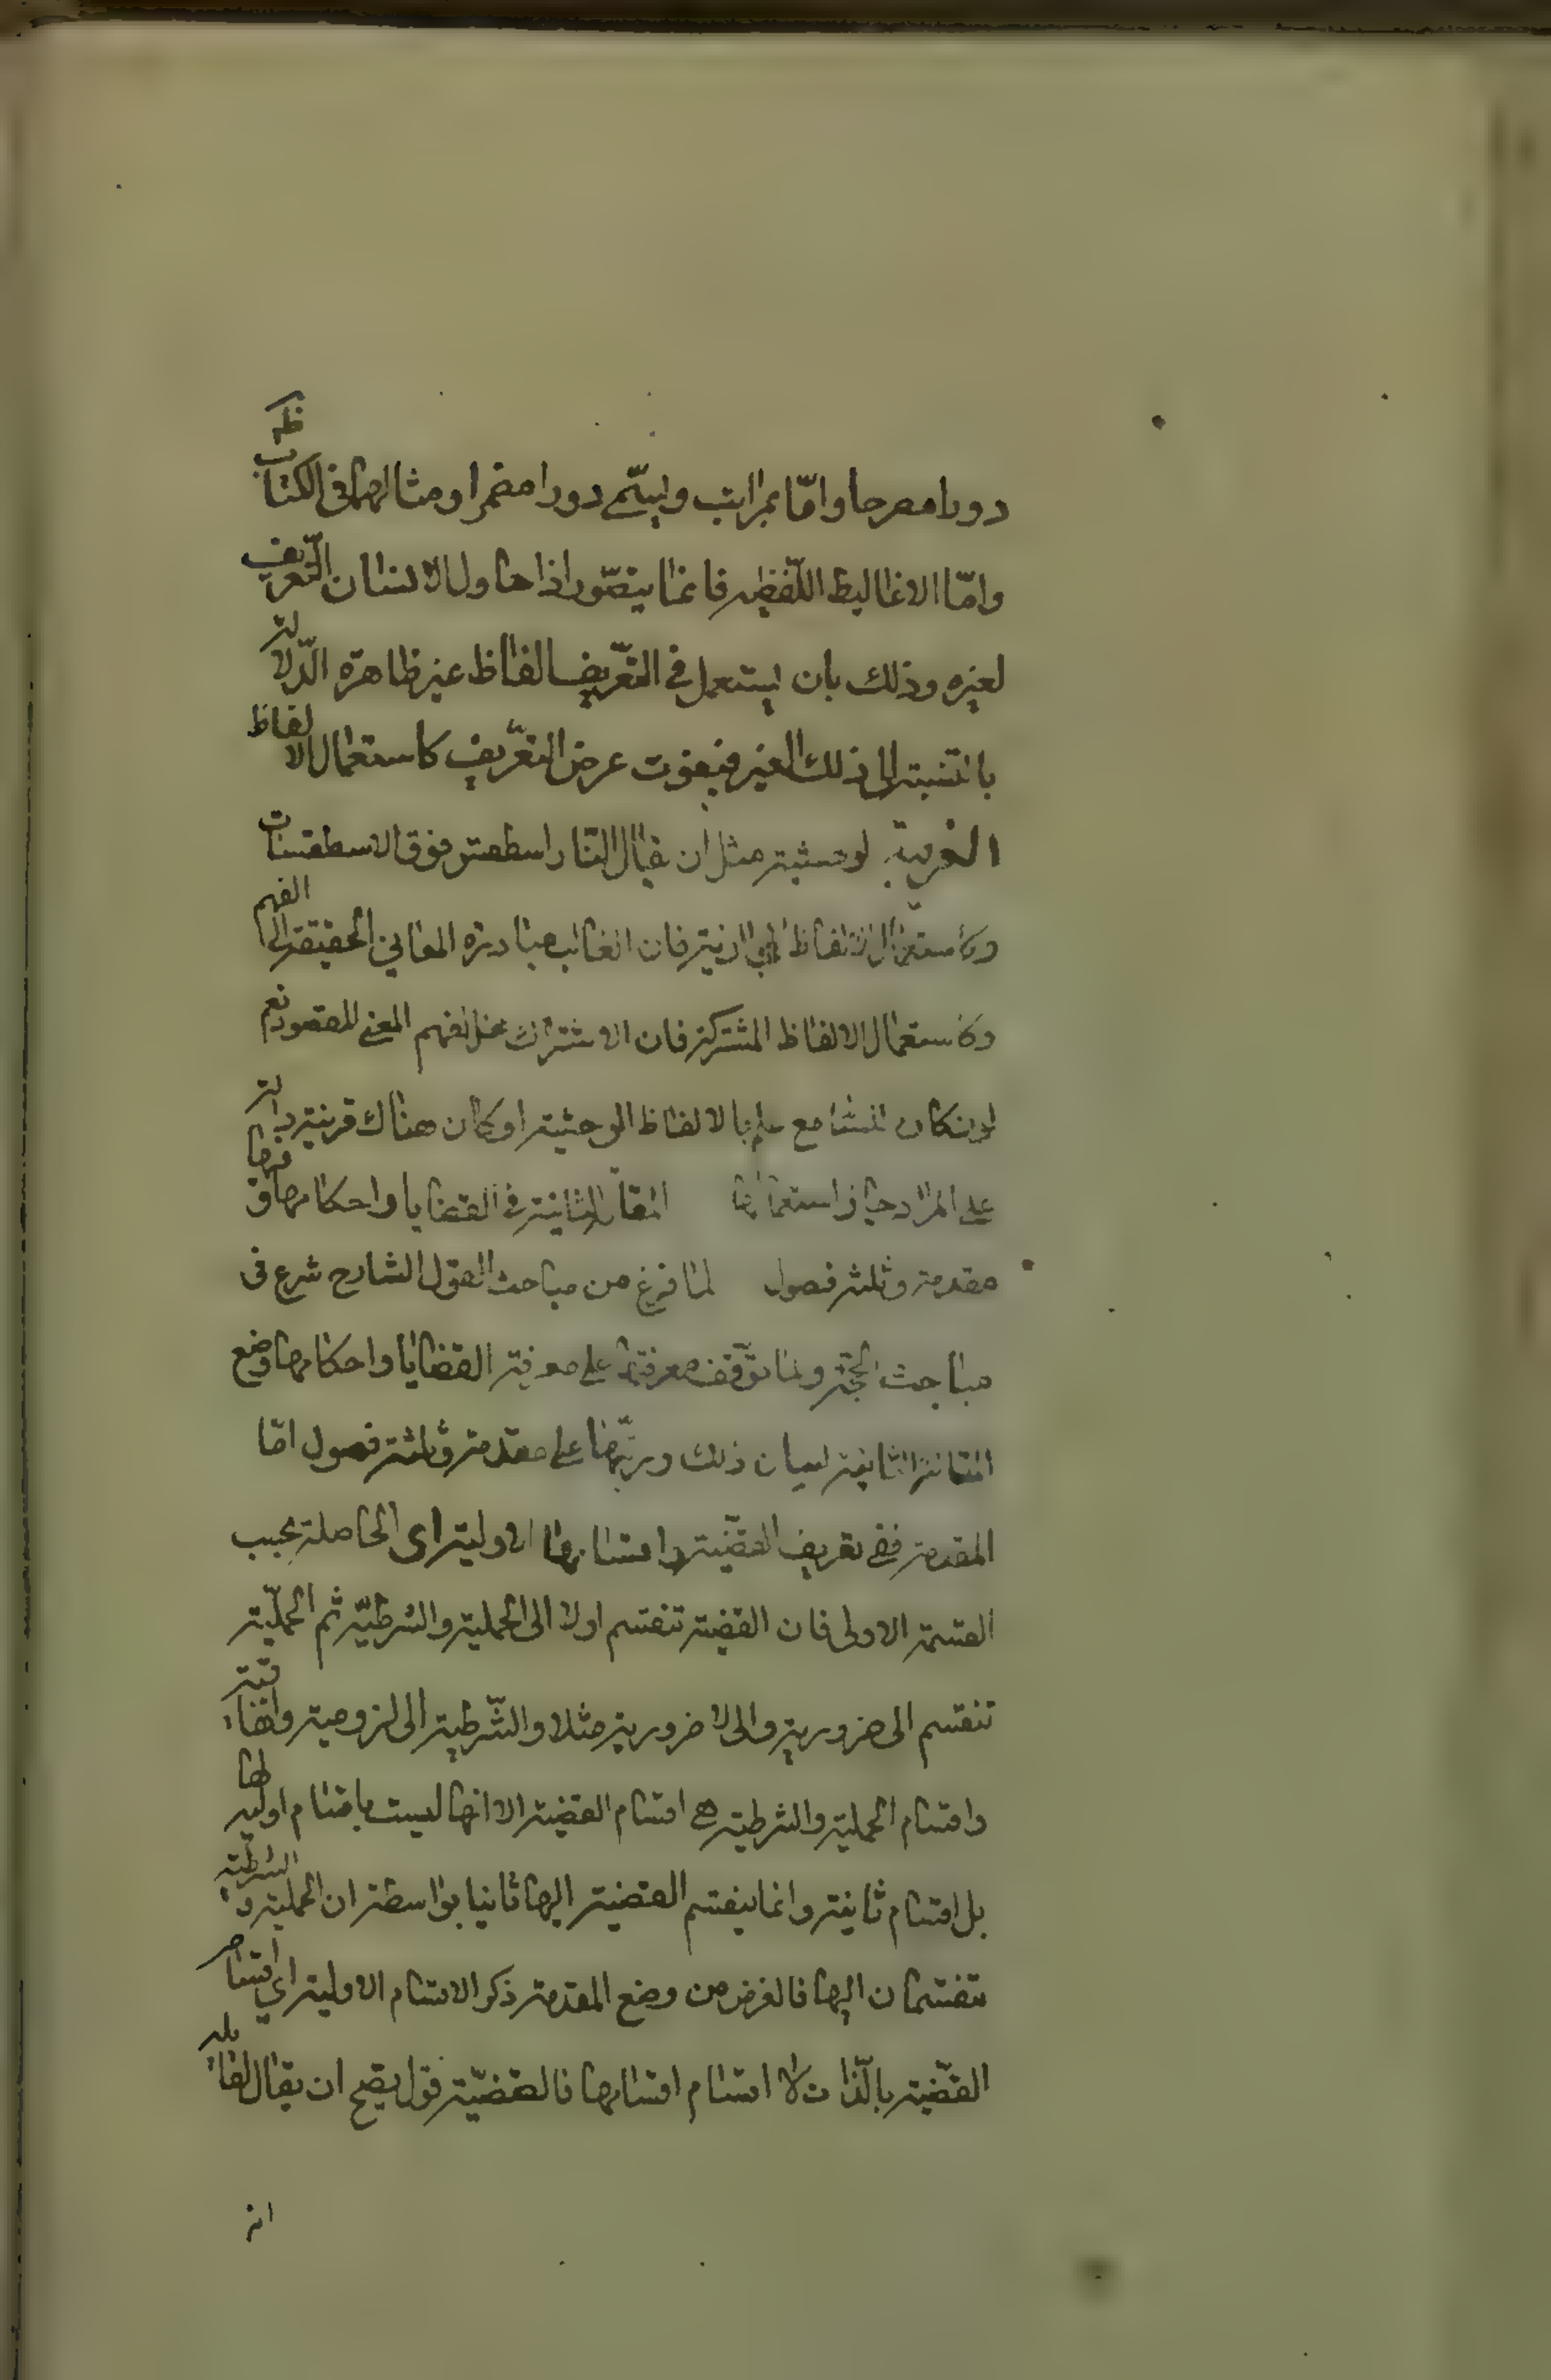 دورا مصرحا واما بمراتب ويسمّى دورا مضمرا ومثالهما فى الكتاب ظاهر
وامّا الاغاليط اللّفظيه فانما يتصّور اذا حاول الانسان التّعريف
لغيره وذلك بان يستعمل فى التعّريف الفاظ غير ظاهرة الدّلالة
بالنّسبة الى ذلك الغير فيفوت غرض التعّريف كاستعمال الالفاظ
الغريبة الوحشية مثل ان يقال النّار اسطقس فوق الاسطقسات
وكاستعمال الالفاظ المجازية فان الغالب مبادرة المعانى الحقيقة الى الفهم
وكاستعمال الالفاظ المشتركة فان الاشتراك مخل لفهم المعنى المقصود نعم
لو كان للسّامع علم بالالفاظ الوحشية او كان هناك قرينة دالة
على المراد جاز استعمالها المقالة الثانية فى القضايا واحكامها وفيها
مقدمة وثلثة فصول لما فرغ من مباحث القول الشارح شرع فى
مباحث الحجّة ولما توقّف معرفتها على معرفة القضايا واحكامها وضع
المقالة الثانية لبيان ذلك ورتّبها على مقدمة وثلثة فصول امّا
المقدمة ففى تعريف القضّية واقسامها الاولية اى الحاصلة بحسب
القسمة الاولى فان القضية تنقسم اولا الى الحملية والشرطيّة ثم الحمليّة
تنقسم الى ضرورية والى لا ضرورية مثلا والشّرطية الى لزومية واتفاقية
واقسام الحملية والشرطية هى اقسام القضية الا انها ليست باقسام اولية لها
بل اقسام ثانية وانما ينقسم القضية اليها ثانيا بواسطة ان الحملية والشرطية
تنقسمان اليها فالغرض من وضع المقدمة ذكر الاقسام الاولية اى اقسام
القضّية بالّذات لا اقسام اقسامها فالقضيّة قول يصح ان يقال لقائله
انه